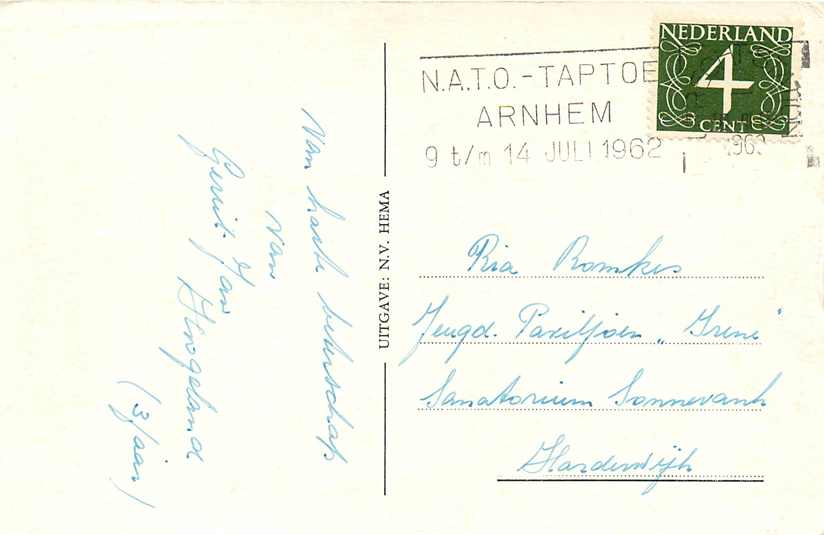 Van harte beterschap
van
Gerrit Jan
Hogeland
(3 jaar)
UITGAVE: N.V. HEMA
N.A.T.O.-TAPTOE
ARNHEM
9 t/m 14 JULI 1962
NEDERLAND
4
CENT
Ria Romkes
Jeugd. Paviljoen „Irene"
Sanatorium Sonnevanck
Harderwijk